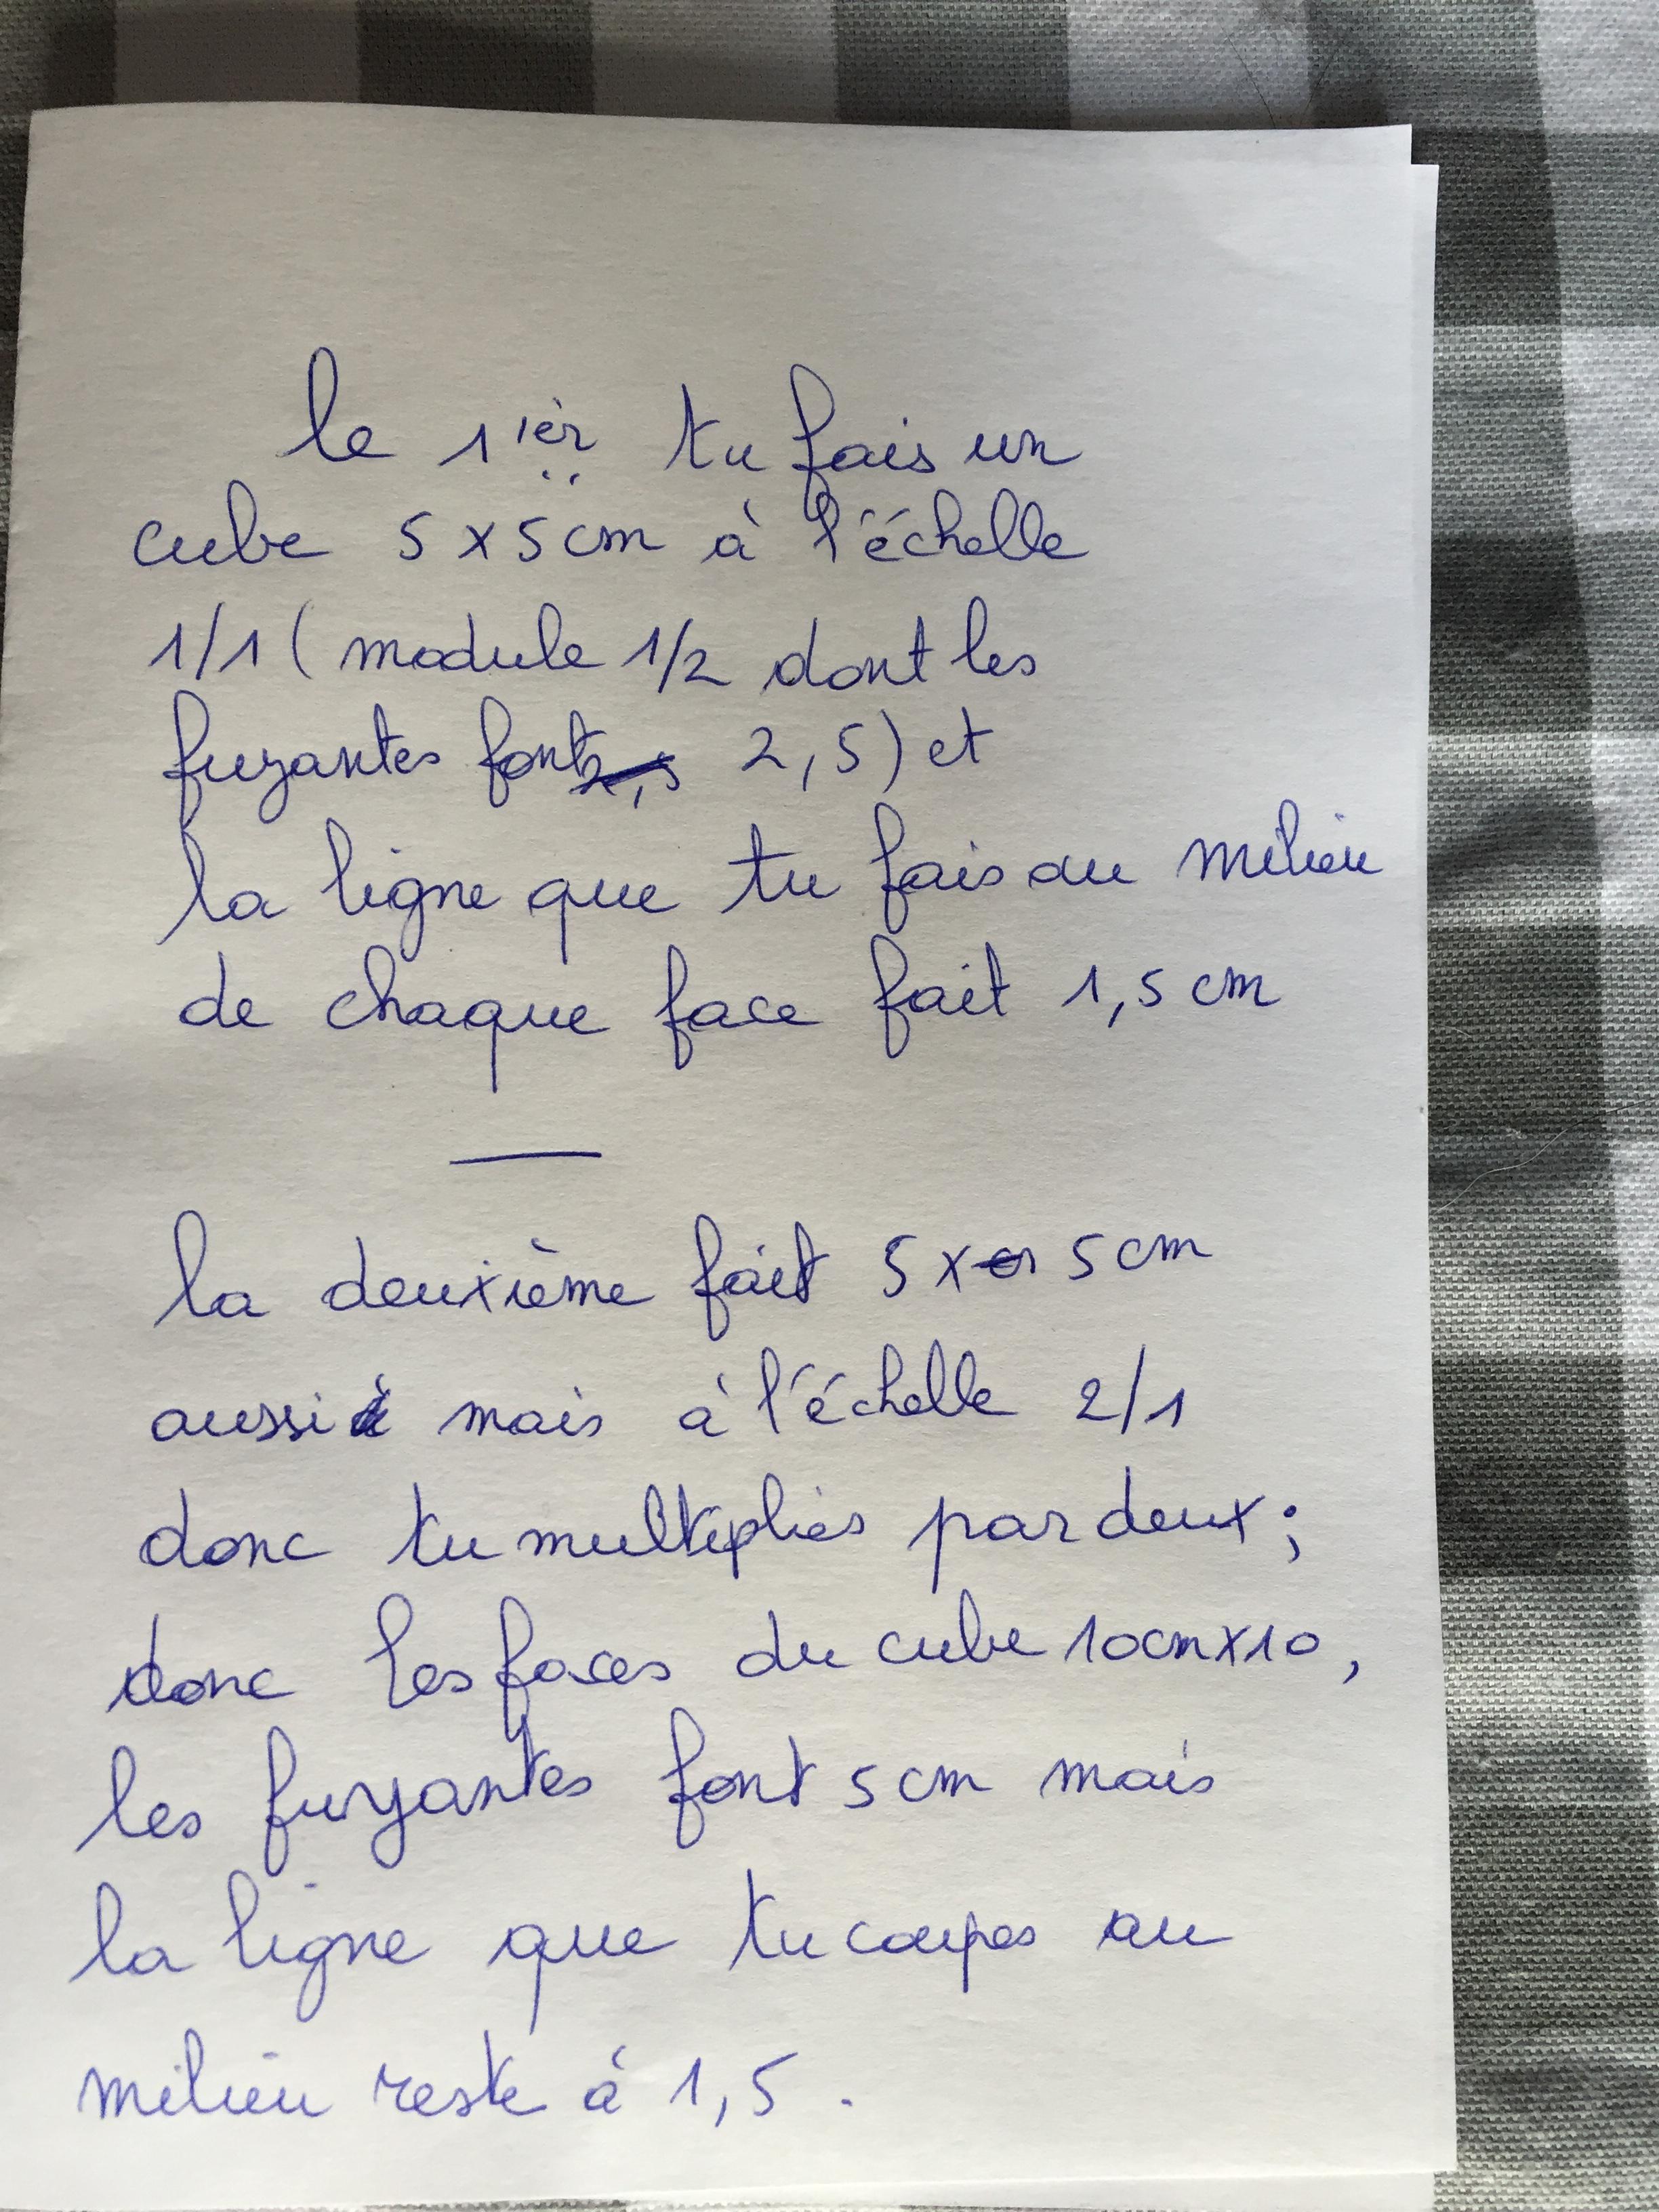 le 1ièr tu fais un
cube 5 x 5 cm à l'échelle
1/1 ( module 1/2 dont les
fuyantes font 2,5) et
la ligne que tu fais au milieu
de chaque face fait 1,5 cm
la deuxième fait 5 x 5 cm
aussi mais à l'échelle 2/1
donc tu multiplies par deux ;
donc les faces du cube 10cm x 10,
les fuyantes font 5 cm mais
la ligne que tu coupes au
milieu reste à 1,5 .